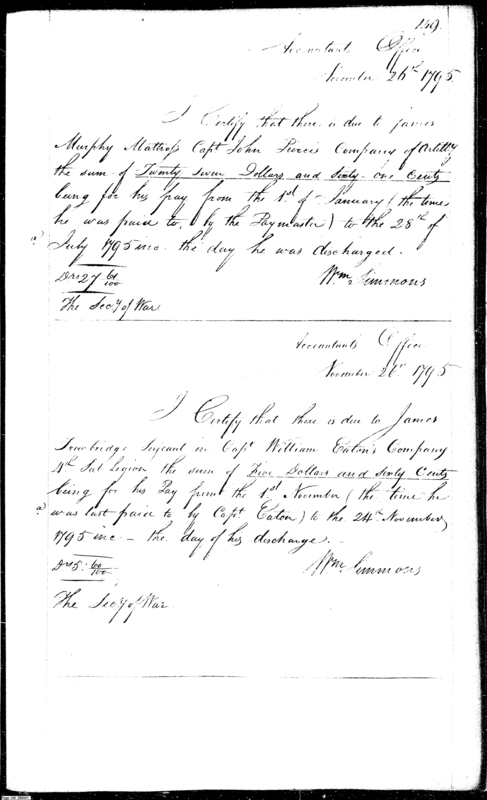 159.
Accountants Office
November 26th 1795.
I Certify that there is due to James
Murphy Mattross Capt John Pierces Company of Artilly
the sum of Twenty seven Dollars and sixty-one Cents
being for his pay from the 1st of January (the time
he was paid to, by the Paymaster) to the 28th of
July 1795 inc. the day he was discharged.
Drs 27 61/100
Wm Simmons
The Secy of War
Accountants Office
November 26th 1795
I Certify that there is due to James
Trowbridge Serjeant in Capt William Eaton's Company
4th Sub Legion the sum of Five Dollars and sixty Cents
being for his Pay from the 1st November (the time he
was last paid to by Capt. Eaton) to the 24th November
1795 inc - the day of his discharge. -
Drs 5: 60/100
Wm Simmons
The Secy of War.